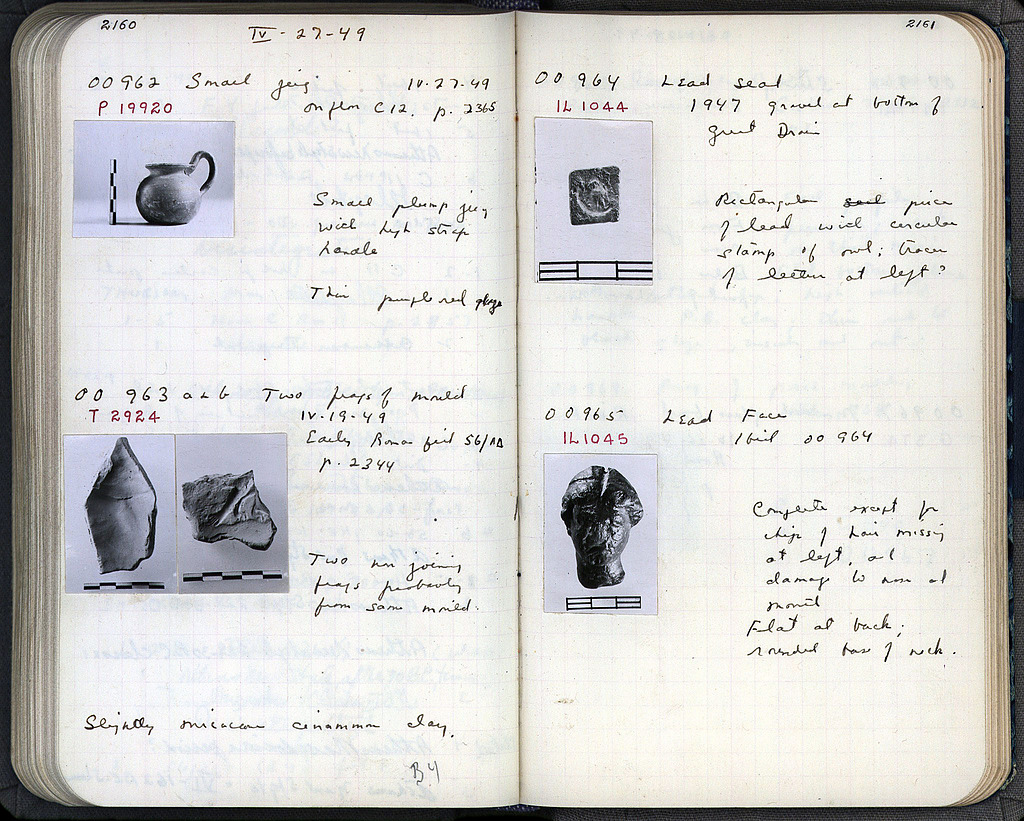 2160
IV-27-49
OO 962 Small jug IV-27-49
P 19920
on floor C12, p. 2365
Small plump jug
with high strap
handle
Thin purple red glaze
OO 963 a & b Two frags of mould
T 2924
IV-19-49
Early Roman fill 56/ΛΔ
p. 2344
Two non joining
frags probably
from same mould.
Slightly micaceous cinammon clay.
B4
2161
OO 964 Lead seal
IL 1044
1947 gravel at bottom of
Great Drain
Rectangular seal piece
of lead with circular
stamp of owl; traces
of letters at left?
OO 965 Lead Face
IL 1045
Ibid OO 964
Complete except for
chip of hair missing
at left, and
damage to nose and
mouth
Flat at back;
rounded base of neck.